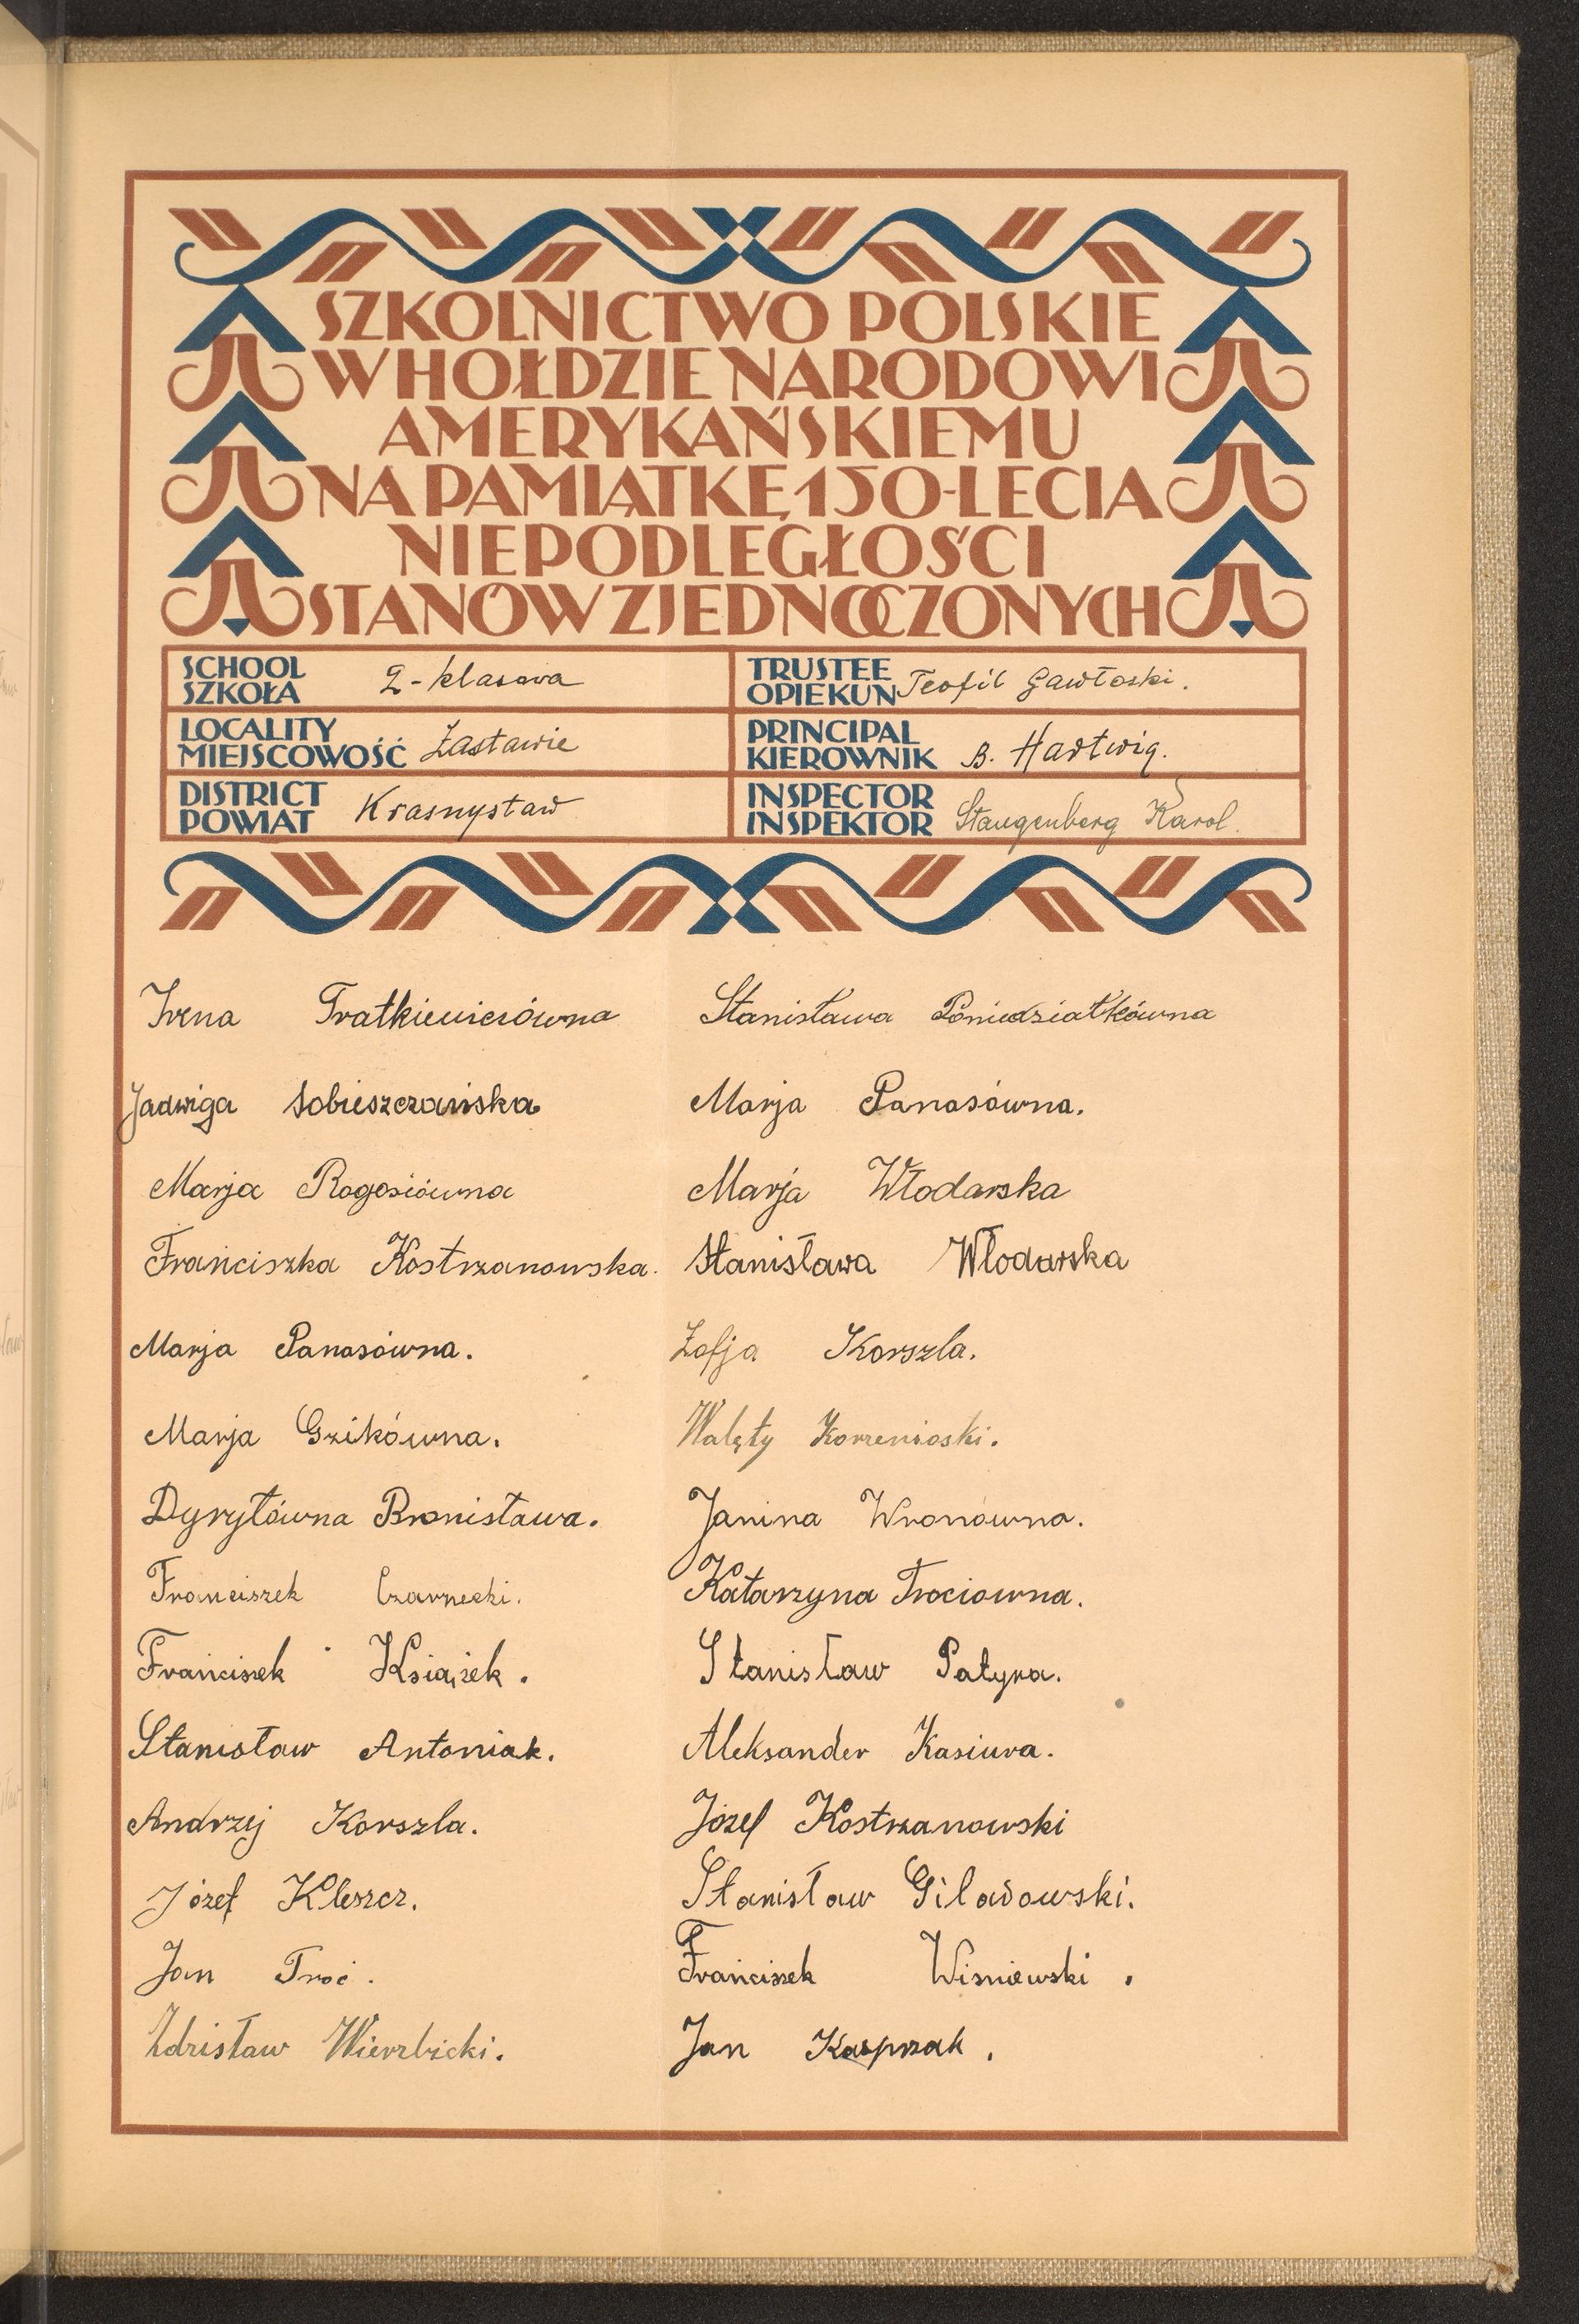 SZKOLNICTWO POLSKIE
W HOŁDZIE NARODOWI
AMERYKAŃSKIEMU
NA PAMIĄTKĘ 150-LECIA
NIEPODLEGŁOŚCI
STANÓW ZJEDNOCZONYCH
SCHOOL
SZKOŁA 2-klasowa
TRUSTEE
OPIEKUN Teofil Gawłoski.
LOCALITY
MIEJSCOWOŚĆ Zastawie
PRINCIPAL
KIEROWNIK B. Hartwig.
DISTRICT
POWIAT Krasnystaw
INSPECTOR
INSPEKTOR Staugenberg Karol.
Irena Tratkiewiczówna
Jadwiga Sobieszczańska
Marja Rogosiówna
Franciszka Kostrzanowska.
Marja Panasówna.
Marja Gzikówna.
Dyrytówna Bronisława.
Franciszek Czarnecki.
Franciszek Książek.
Stanisław Antoniak.
Andrzej Korszla.
Józef Kleszcz.
Jan Troć.
Zdzisław Wierzbicki.
Stanisława Poniedziałkówna
Marja Panasówna.
Marja Włodarska
Stanisława Włodarska
Zofja Korszla.
Walęty Korzenioski.
Janina Wronówna.
Katarzyna Trociowna.
Stanisław Patyra.
Aleksander Kasiura.
Józef Kostrzanowski
Stanisław Giladowski.
Franciszek Wisniewski.
Jan Kasprzak.